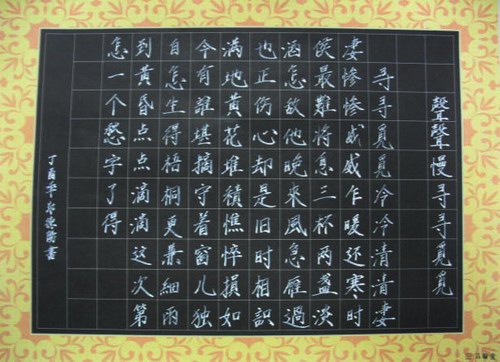 聲聲慢寻寻覓覓
寻寻覓覓冷冷清清凄
凄惨惨戚戚乍暖还寒时
侯最難将息三杯两盏淡
酒怎敌他晚來風急雁過
也正伤心却是旧时相識
满地黄花堆積憔悴損如
今有誰堪摘守着窗儿独
自怎生得梧桐更兼細雨
到黄昏点点滴滴这次第
怎一个愁字了得
丁酉年書